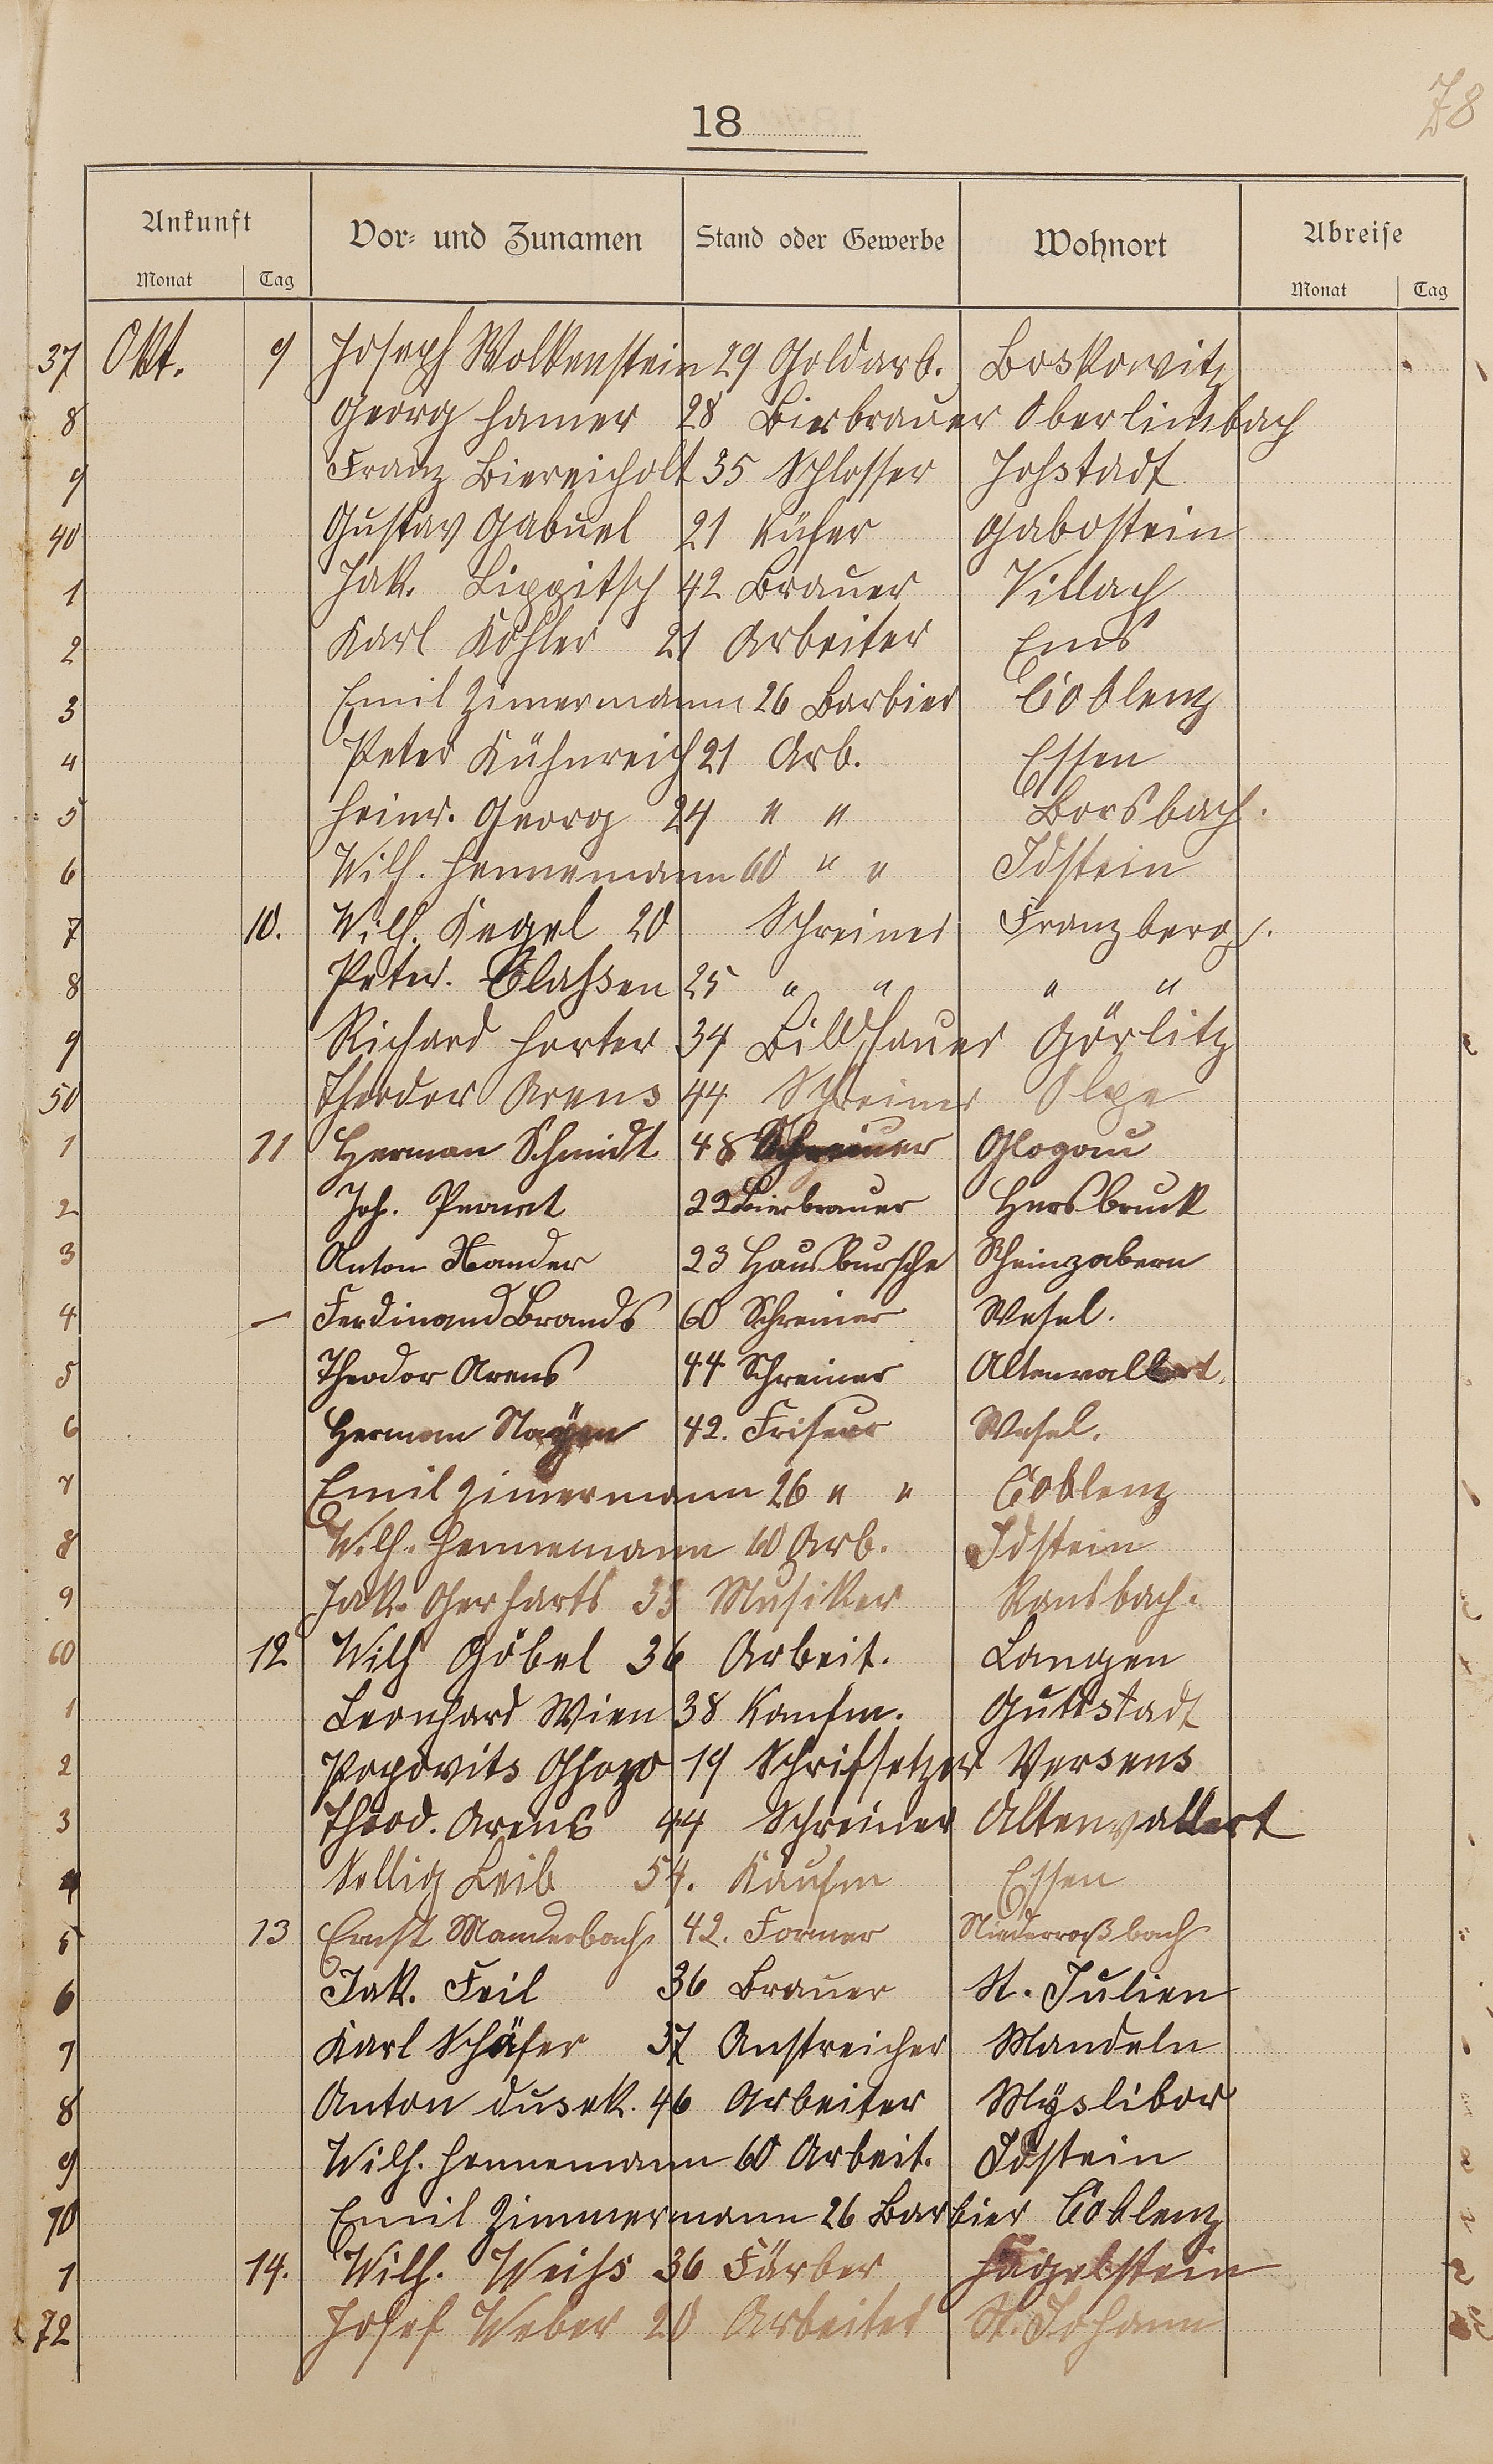 78
18
Ankunft Vor- und Zunamen Stand oder Gewerbe Wohnort Abreise
Monat Tag Monat Tag
37 Okt. 9 Joseph Wolkenstein 29 Goldarb. Boskowitz
8 Georg Hamer 28 Bierbrauer Oberlimbach
9 Franz Biereicholt 35 Schlosser Johstadt
40 Gustav Gabuel 21 Küfer Gabostein
1 Jak. Lippitsch 42 Brauer Villach
2 Karl Köhler 21 Arbeiter Ems
3 Emil Zimermann 26 Barbier Coblenz
4 Peter Kühnreich 21 Arb. Essen
5 Heinr. Georg 24 " " Borsbach.
6 Wilh. Hennemann 60 " " Idstein
7 10. Wilh. Kegel 20 Schreiner Franzberg
8 Peter. Classen 25 " " " "
9 Richard Harter 34 Bildhauer Görlitz
50 Theodor Arens 44 Schreiner Olpe
1 11 Herman Schmidt 48 Schreiner Glogau
2 Joh. 22 Bierbrauer Hersbruck
3 Anton Xander 23 Hausbursche Rheinzabern
4 – Ferdinand Brands 60 Schreiner Wesel.
5 Theodor Arens 44 Schreiner Altenvallert.
6 Herman 42. Friseur Wesel.
7 Emil Zimermann 26 " " Coblenz
8 Wilh. Hennemann 60 Arb. Idstein
9 Jak. Gerharts 33 Musiker Ransbach.
60 12 Wilh Göbel 36 Arbeit. Langen
1 Leonhard Wien 38 Kaufm. Guttstadt
2 Popovits 19 Schrifsetzer Versens
3 Theod. Arens 44 Schreiner Altenvallert
4 Selig Leib 54. Kaufm Essen
5 13 Ernst Manderbach 42. Former Niederroßbach
6 Jak. Feil 36 Brauer St. Julien
7 Karl Schäfer 37 Anstreicher Mandeln
8 Anton Dusek. 46 Arbeiter Myslibor
9 Wilh. Hennemann 60 Arbeit. Idstein
70 Emil Zimmermann 26 Barbier Coblenz
1 14. Wilh. Weihs 36 Färber
72 Josef Weber 20 Arbeiter St. Johann